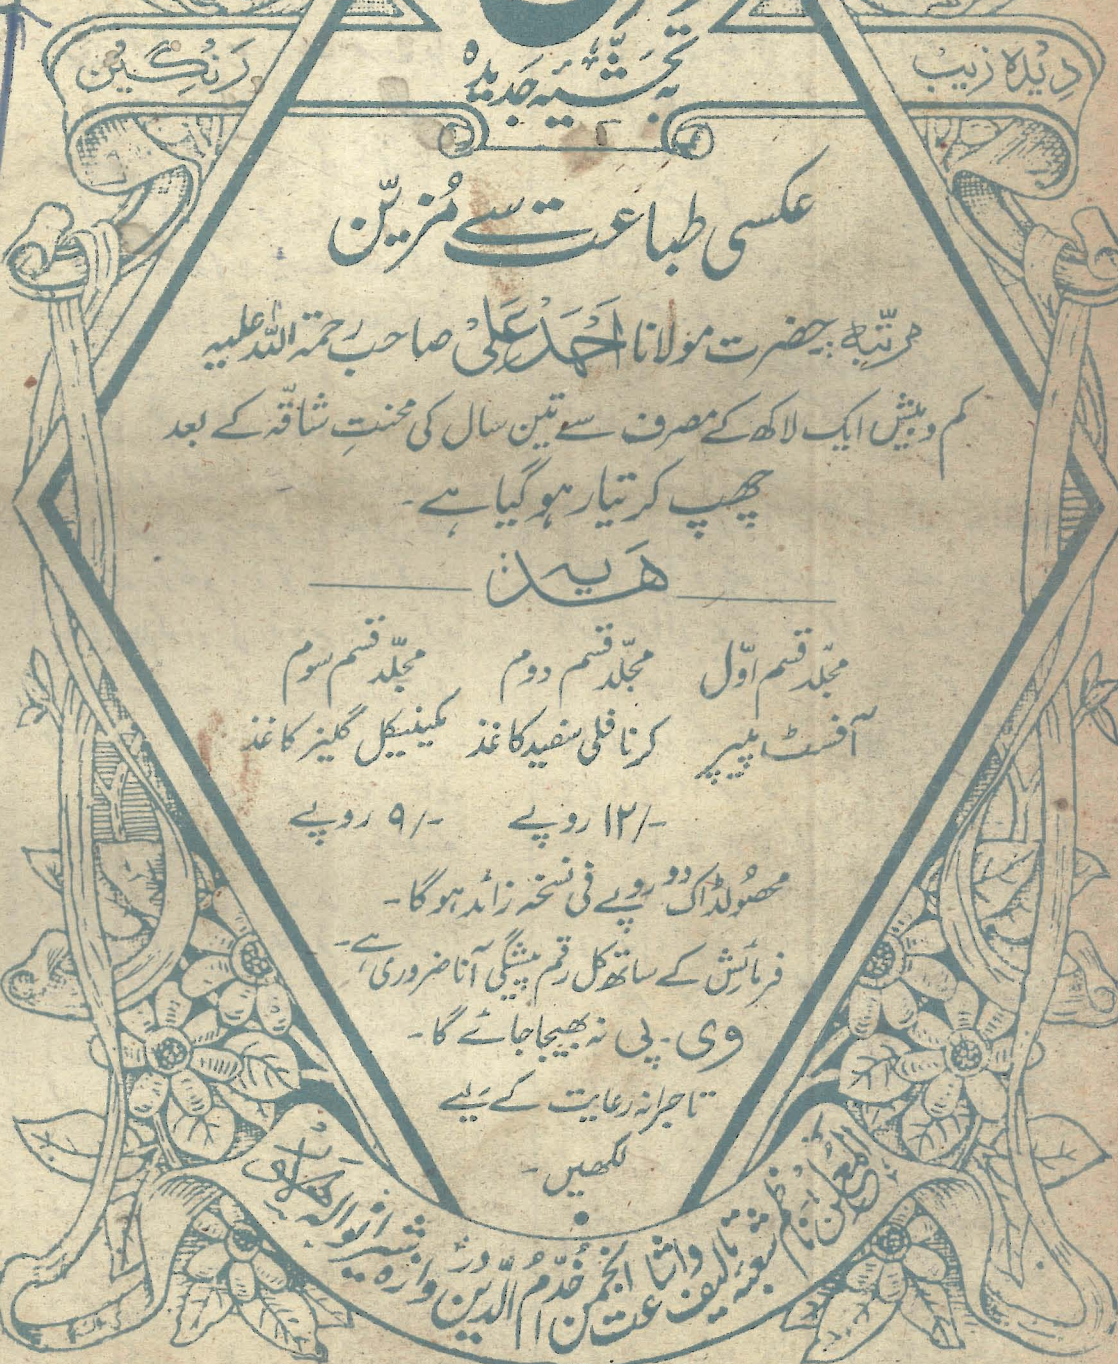 دیدہ زیب
بہ تحشیہ جدیدہ
رنگین
عکسی طباعت سے مُزیّن
مرتّبہ:۔ حضرت مولانا اَحْمَدْ عَلیْ صاحب رحمۃ اللہ علیہ
کم و بیش ایک لاکھ کے مصرف سے تین سال کی محنتِ شاقّہ کے بعد
چھپ کر تیار ہو گیا ہے۔
ھَدیہ
مجلّد قسم اوّل مجلّد قسم دوم مجلّد قسم سوم
آفسٹ پیپر کرنافلی سفید کاغذ مکینیکل گلیز کاغذ
۱۲/- روپے ۹/- روپے
محصُولڈاک دو روپے فی نسخہ زائد ہوگا۔
فرمائش کے ساتھ کل رقم پیشگی آنا ضروری ہے۔
وی۔ پی نہ بھیجا جائے گا۔
تاجرانہ رعایت کے لیے
لکھیں۔
المعلن: ناظم شعبہ تالیف و اشاعت انجمن خدّام الدّین دروازہ شیرانوالہ لاہور